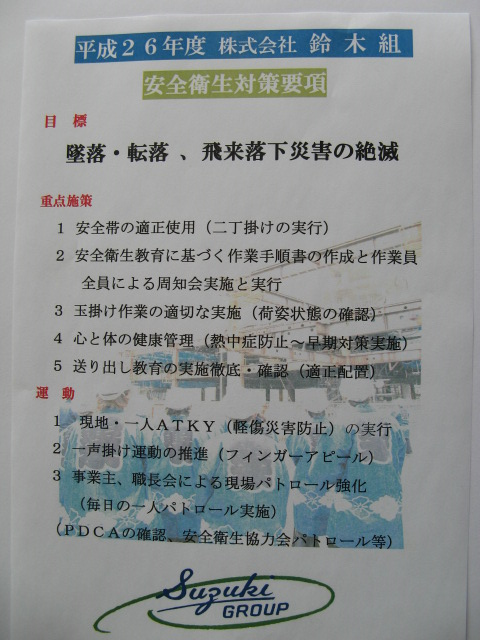 平成２６年度 株式会社 鈴木組
安全衛生対策要項
目 標
墜落・転落 、飛来落下災害の絶滅
重点施策
１ 安全帯の適正使用（二丁掛けの実行）
２ 安全衛生教育に基づく作業手順書の作成と作業員
全員による周知会実施と実行
３ 玉掛け作業の適切な実施（荷姿状態の確認）
４ 心と体の健康管理（熱中症防止～早期対策実施）
５ 送り出し教育の実施徹底・確認（適正配置）
運 動
１ 現地・一人ＡＴＫＹ（軽傷災害防止）の実行
２ 一声掛け運動の推進（フィンガーアピール）
３ 事業主、職長会による現場パトロール強化
（毎日の一人パトロール実施）
（ＰＤＣＡの確認、安全衛生協力会パトロール等）
Suzuki
GROUP